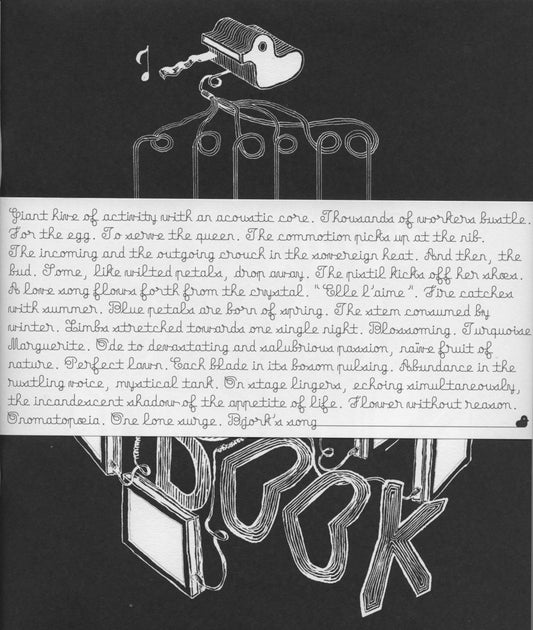 Giant hive of activity with an acoustic core. Thousands of workers bustle.
For the egg. To serve the queen. The commotion picks up at the nib.
The incoming and the outgoing crouch in the sovereign heat. And then, the
bud. Some, like wilted petals, drop away. The pistil kicks off her shoes.
A love song flows forth from the crystal. "Elle l'aime". Fire catches
with summer. Blue petals are born of spring. The stem consumed by
winter. Limbs stretched towards one single night. Blossoming. Turquoise
Marguerite. Ode to devastating and salubrious passion, naïve fruit of
nature. Perfect lawn. Each blade in its bosom pulsing. Abundance in the
rustling voice, mystical tank. On stage lingers, echoing simultaneously,
the incandescent shadow of the appetite of life. Flower without reason.
Onomatopœia. One lone surge. Bjork's song
BOOK